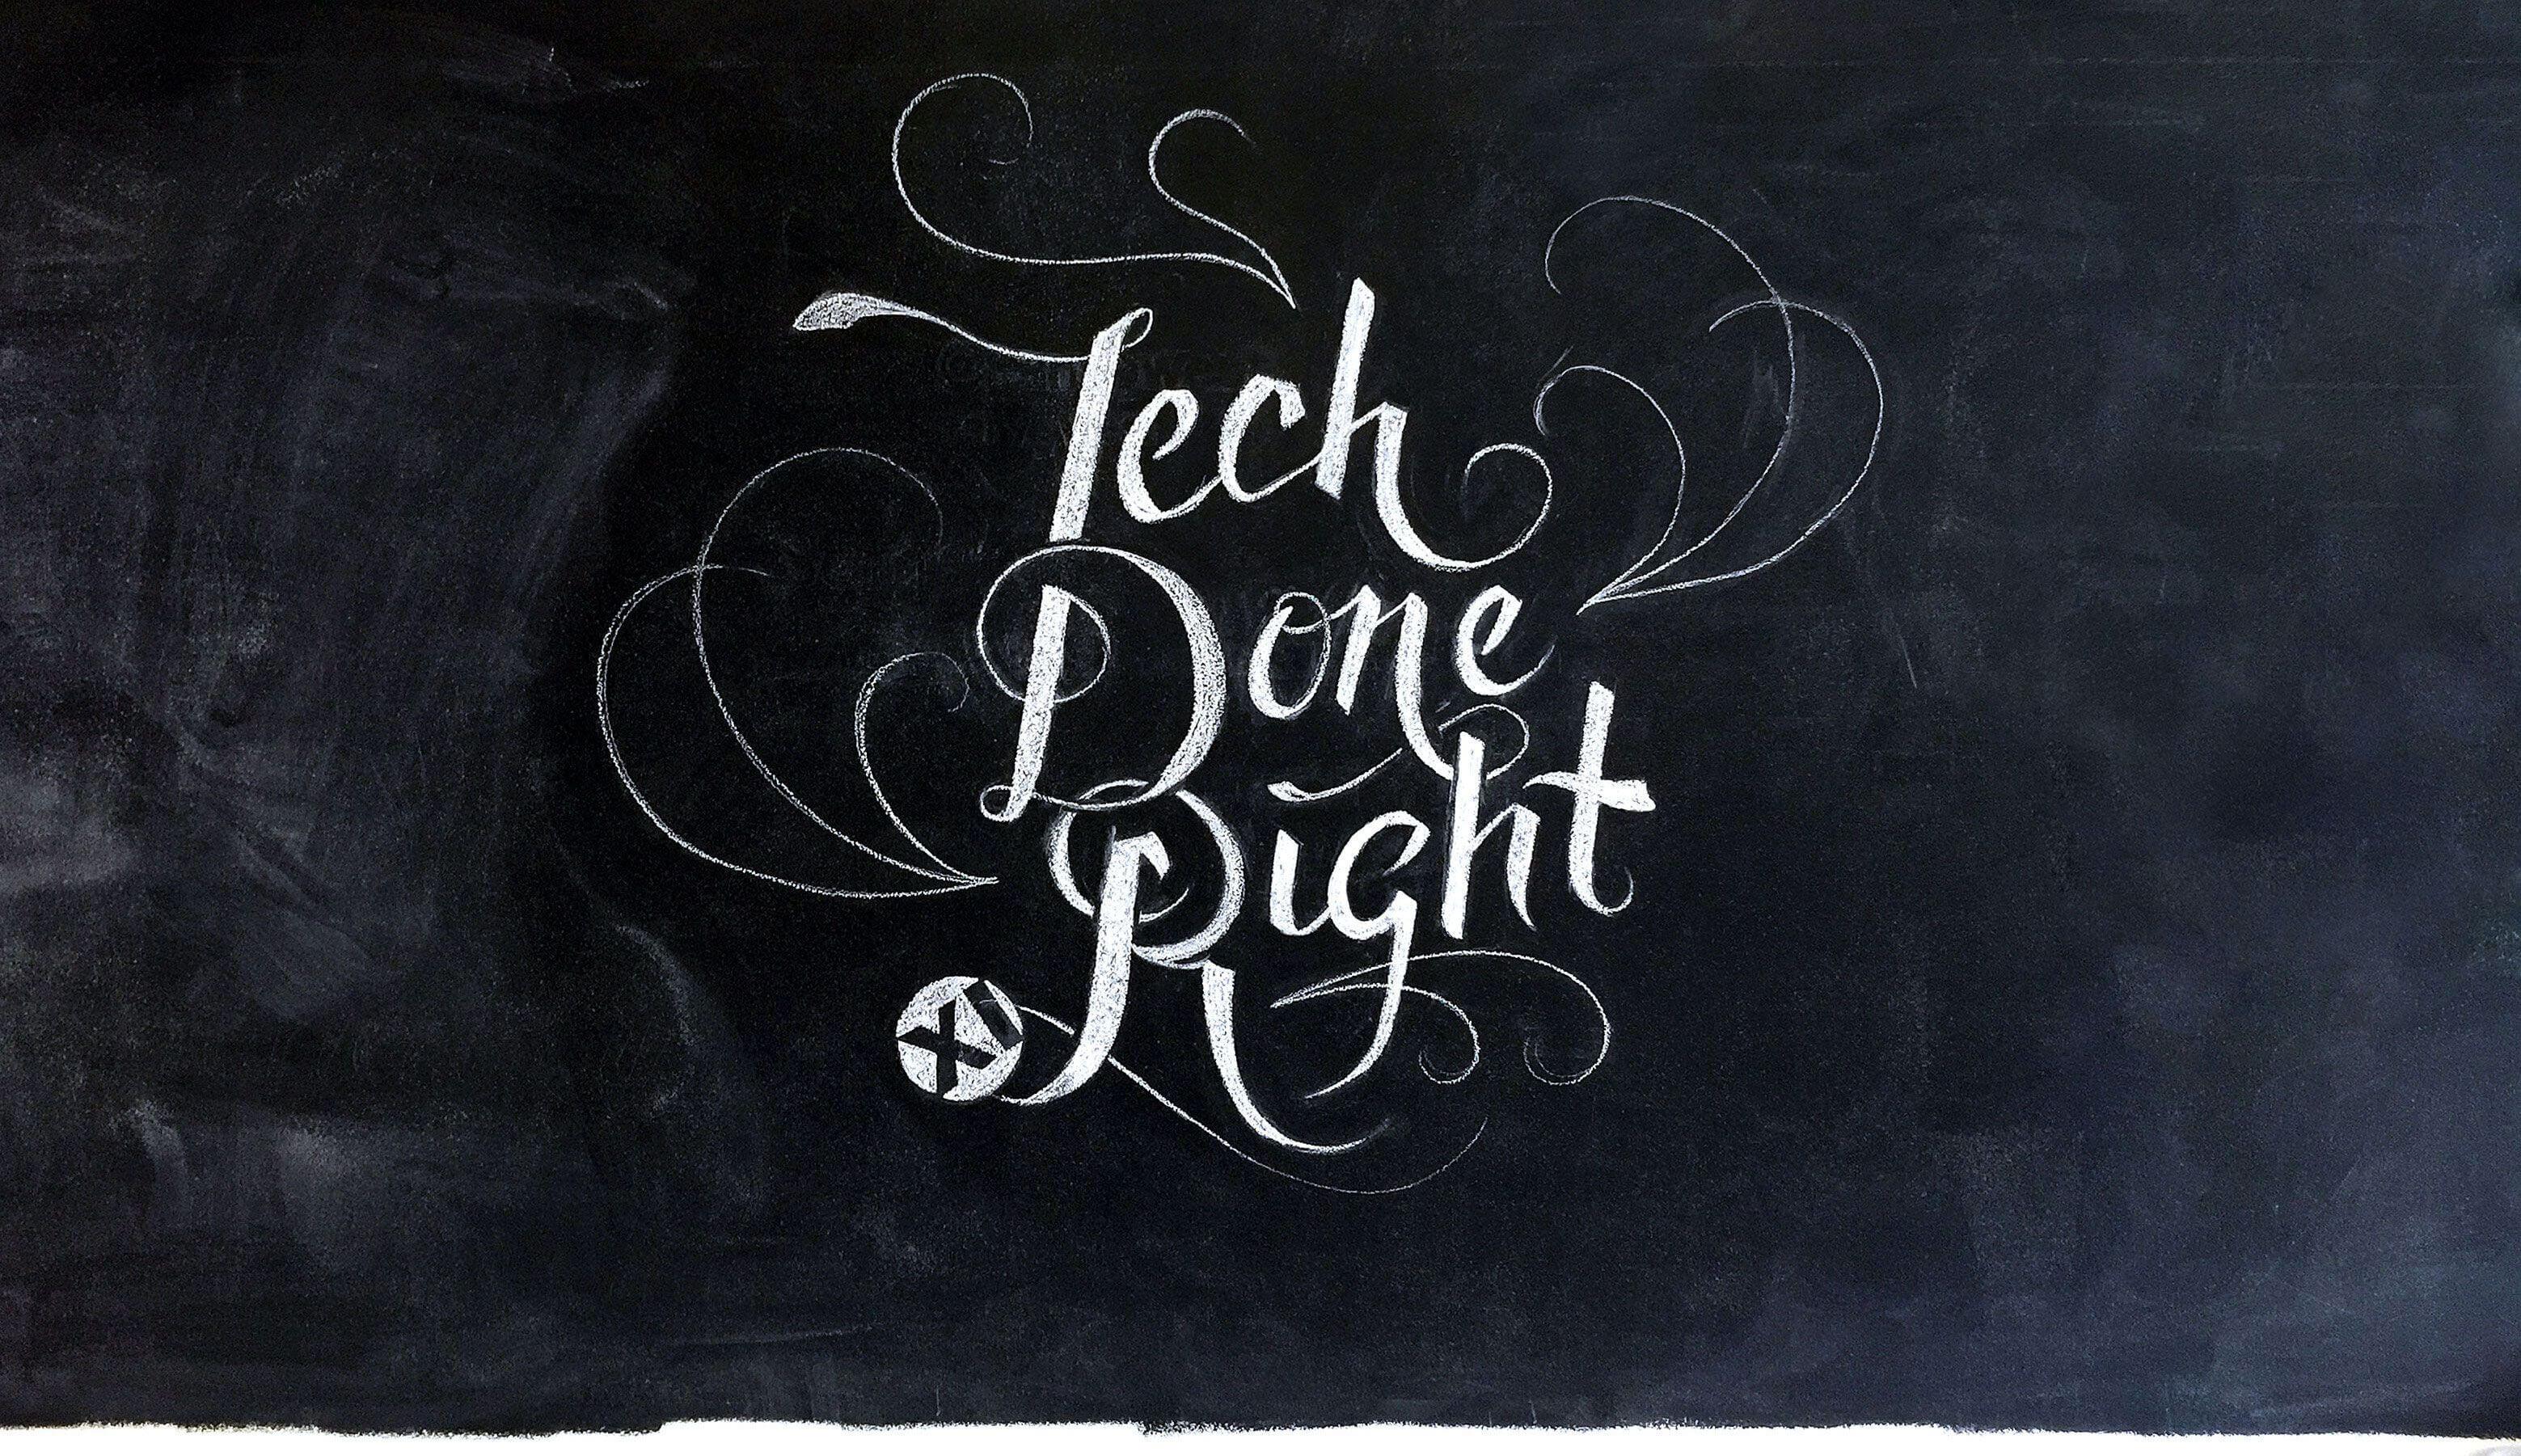 Tech
Done
Right
XI